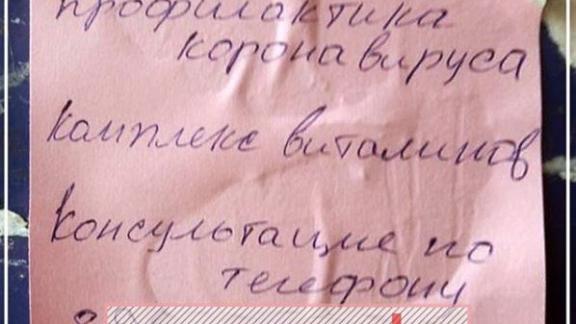 профилактика
коронавируса
Комплекс витаминов
Консультацие по
телефону